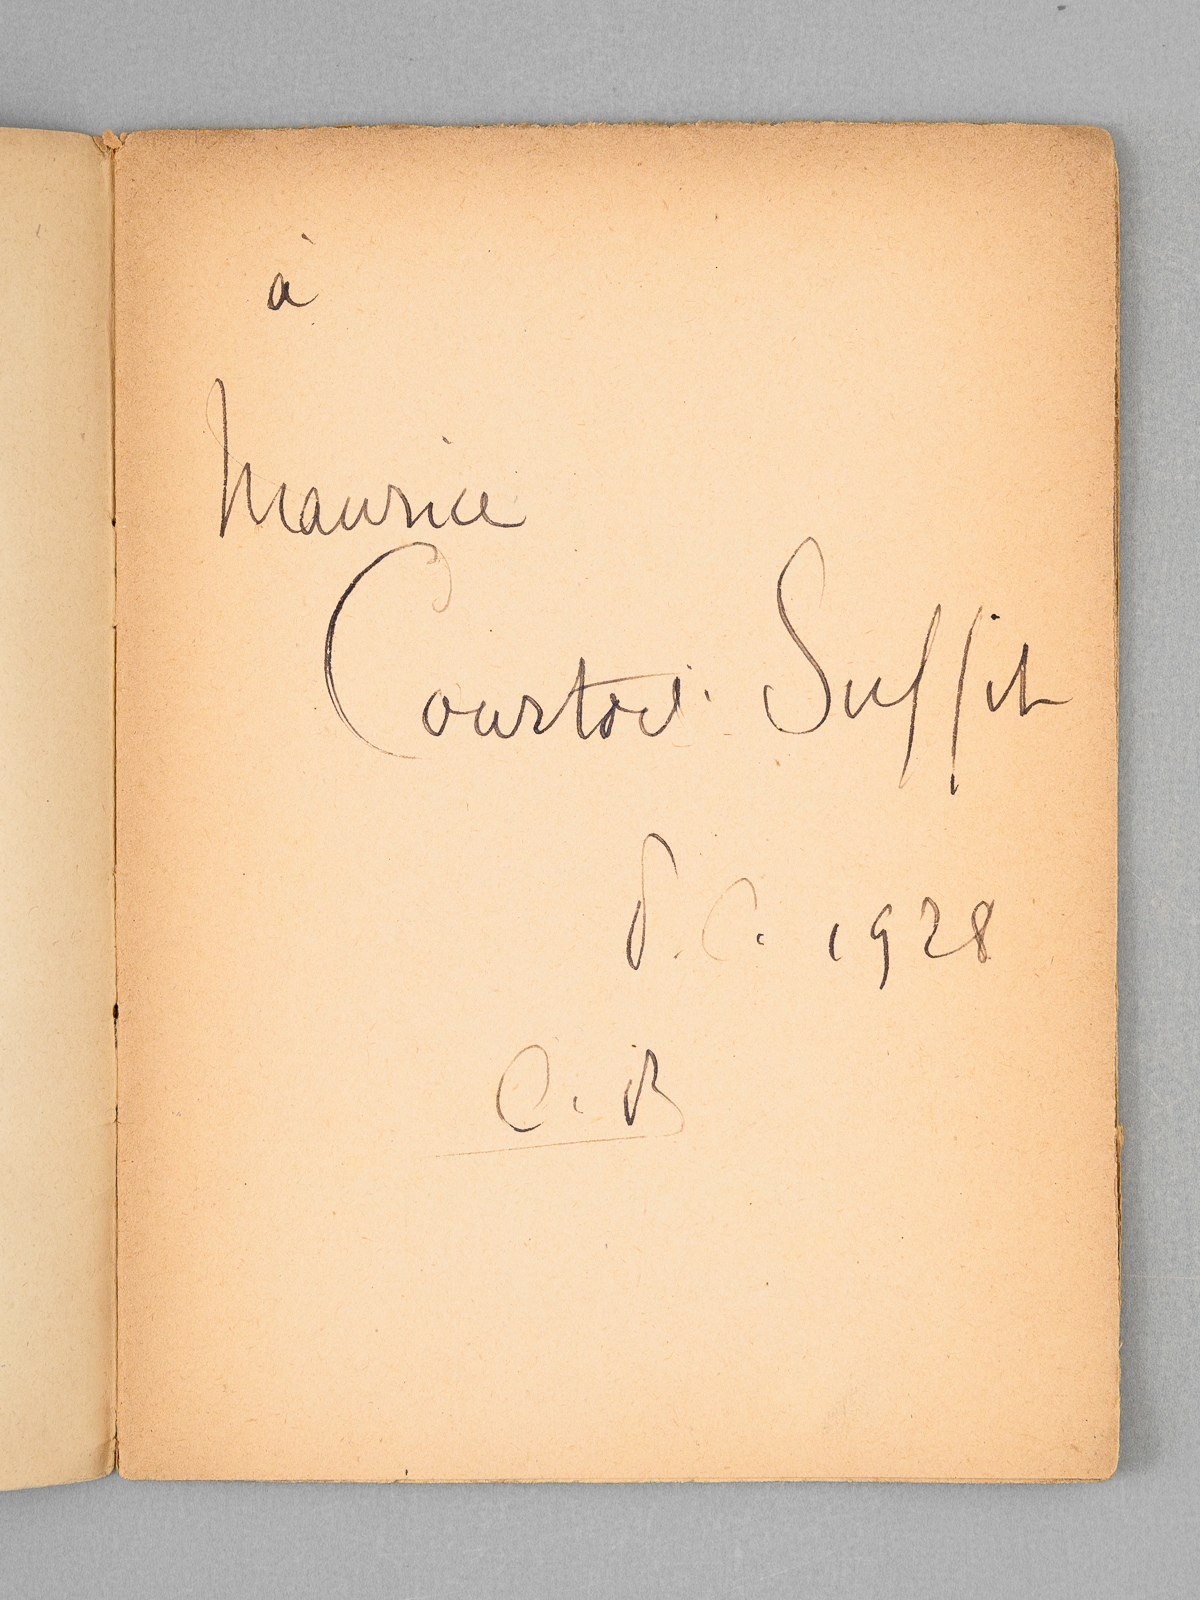 à
Maurice
Courtois-Suffit
P.C. 1928
C.B